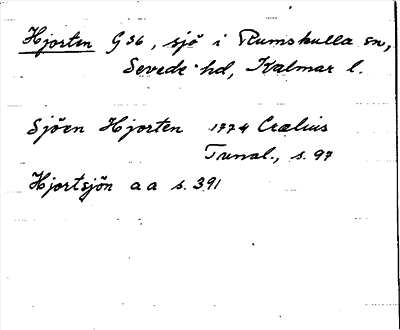 Hjorten G36, sjö i Rumskulla sn,
Sevede hd, Kalmar l.
Sjöen Hjorten 1774 Crælius
Tunal., s. 97
Hjortsjön a a s. 391